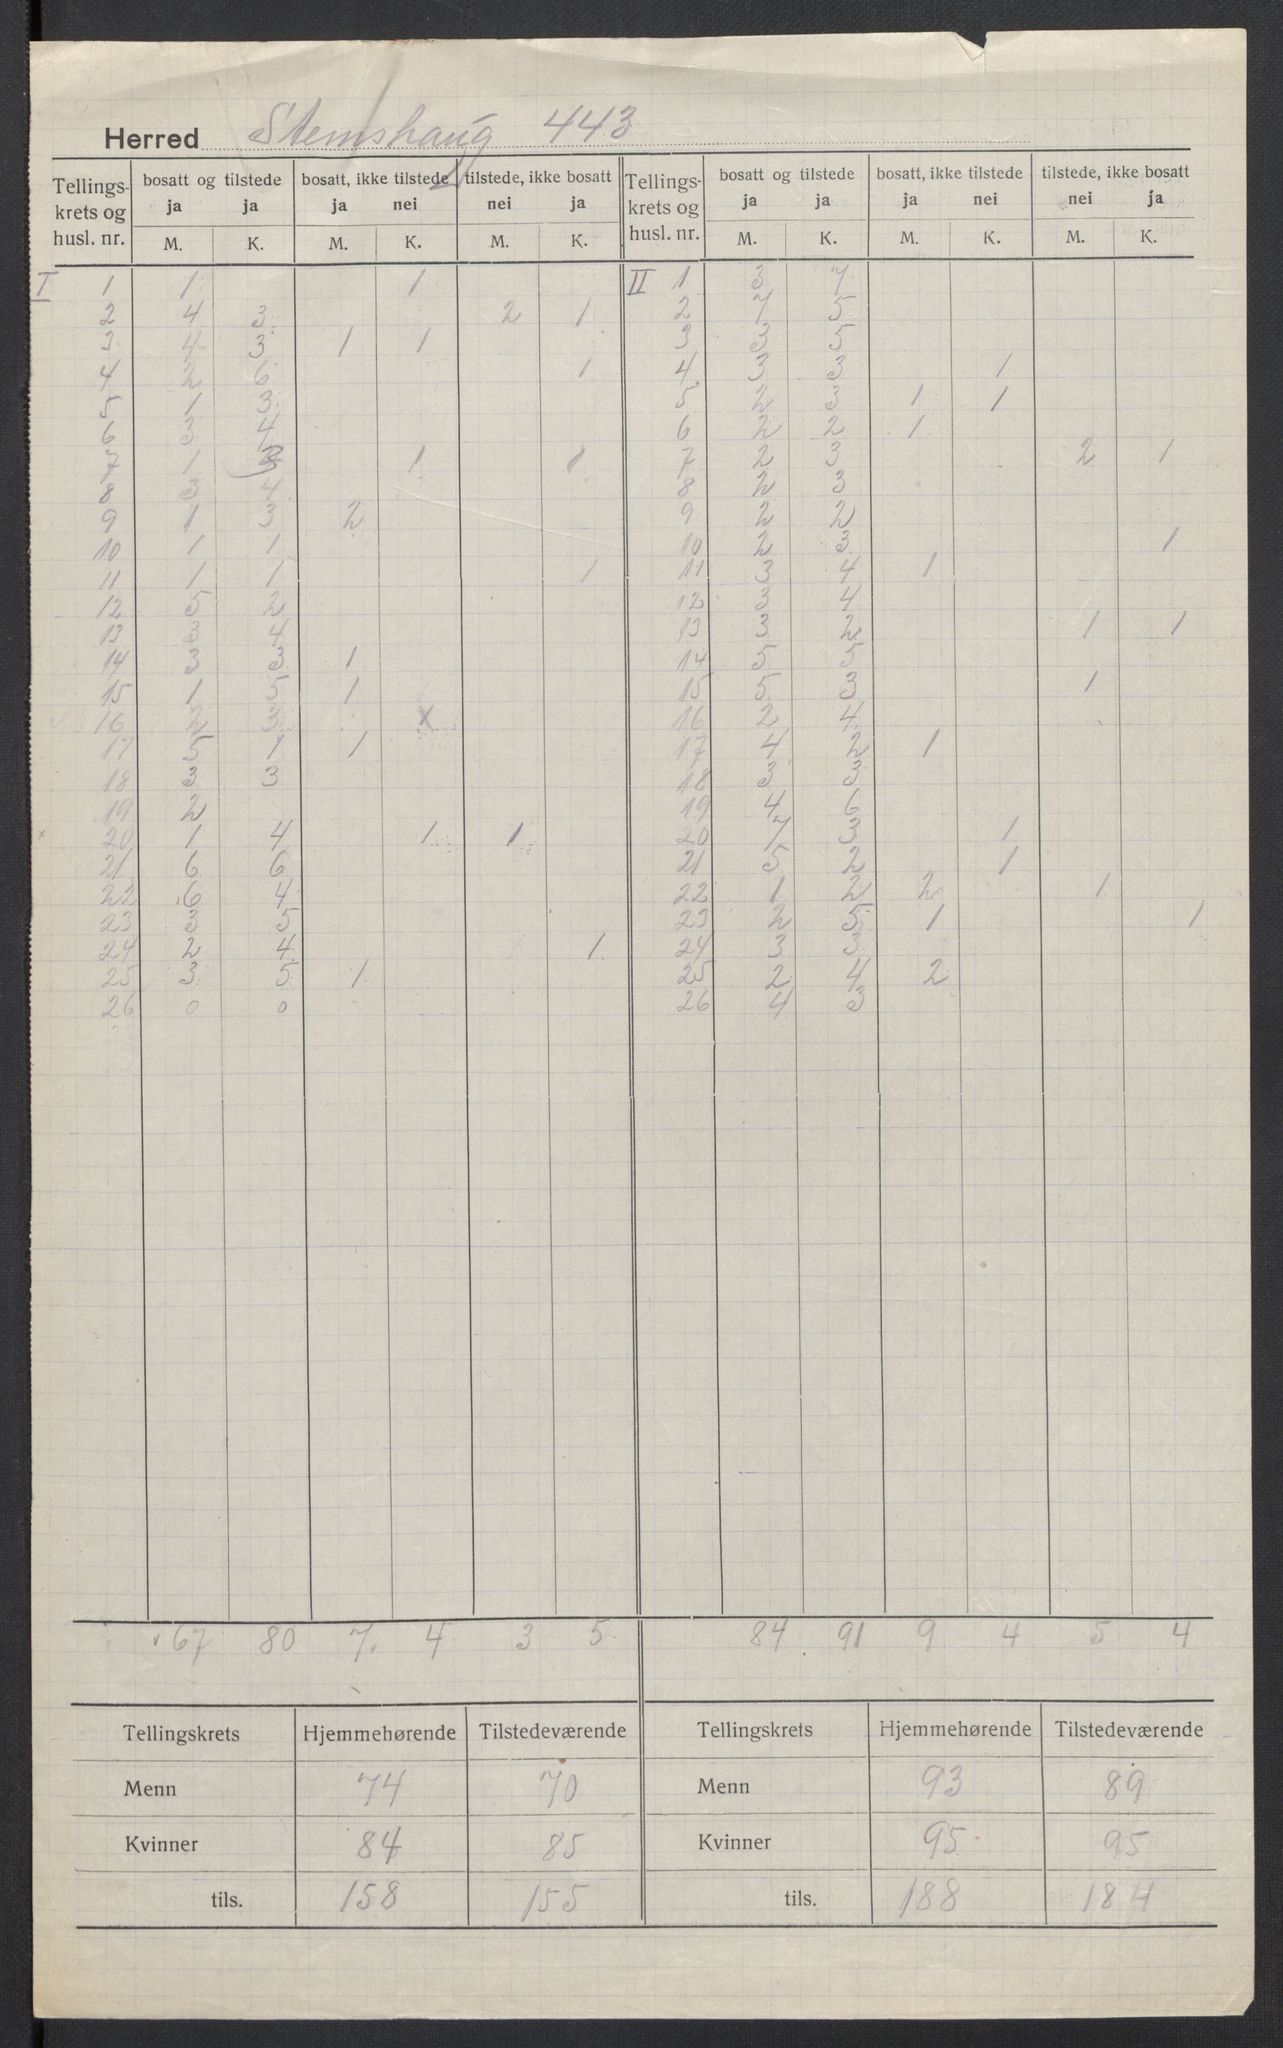 Herred Stemshaug 443
Tellings- krets og husl. nr. | bosatt og tilstede | bosatt, ikke tilstede | tilstede, ikke bosatt | Tellings- krets og husl. nr. | bosatt og tilstede | bosatt, ikke tilstede | tilstede, ikke bosatt
ja ja ja nei nei ja ja ja ja nei nei ja
M. K. M. K. M. K. M. K. M. K. M. K.
I 1 | 1 | | | 1 | | | II 1 | 3 | 7 | | | |
2 | 4 | 3 | | | 2 | 1 | 2 | 7 | 5 | | | |
3 | 4 | 3 | 1 | 1 | | | 3 | 3 | 5 | | | |
4 | 2 | 6 | | | | 1 | 4 | 3 | 3 | | 1 | |
5 | 1 | 3 | | | | | 5 | 2 | 3 | 1 | 1 | |
6 | 3 | 4 | | | | | 6 | 2 | 2 | 1 | | |
7 | 1 | 3 | | 1 | | 1 | 7 | 2 | 3 | | | 2 | 1
8 | 3 | 4 | | | | | 8 | 2 | 3 | | | |
9 | 1 | 3 | 2 | | | | 9 | 2 | 2 | | | |
10 | 1 | 1 | | | | | 10 | 2 | 3 | | | | 1
11 | 1 | 1 | | | | 1 | 11 | 3 | 4 | 1 | | |
12 | 5 | 2 | | | | | 12 | 3 | 4 | | | |
13 | 3 | 4 | | | | | 13 | 3 | 2 | | | 1 | 1
14 | 3 | 3 | 1 | | | | 14 | 5 | 5 | | | |
15 | 1 | 5 | 1 | | | | 15 | 5 | 3 | | | 1 |
16 | 2 | 3 | | x | | | 16 | 2 | 4 | | | |
17 | 5 | 1 | 1 | | | | 17 | 4 | 2 | 1 | | |
18 | 3 | 3 | | | | | 18 | 3 | 3 | | | |
19 | 2 | | | | | | 19 | 4 | 6 | | | |
20 | 1 | 4 | | 1 | 1 | | 20 | 7 | 3 | | 1 | |
21 | 6 | 6 | | | | | 21 | 5 | 2 | | 1 | |
22 | 6 | 4 | | | | | 22 | 1 | 2 | 2 | | 1 |
23 | 3 | 5 | | | | | 23 | 2 | 5 | 1 | | | 1
24 | 2 | 4 | | | | 1 | 24 | 3 | 3 | | | |
25 | 3 | 5 | 1 | | | | 25 | 2 | 4 | 2 | | |
26 | 0 | 0 | | | | | 26 | 4 | 3 | | | |
67 80 7 4 3 5 84 91 9 4 5 4
Tellingskrets | Hjemmehørende | Tilstedeværende | Tellingskrets | Hjemmehørende | Tilstedeværende
Menn 74 70 Menn 93 89
Kvinner 84 85 Kvinner 95 95
tils. 158 155 tils. 188 184